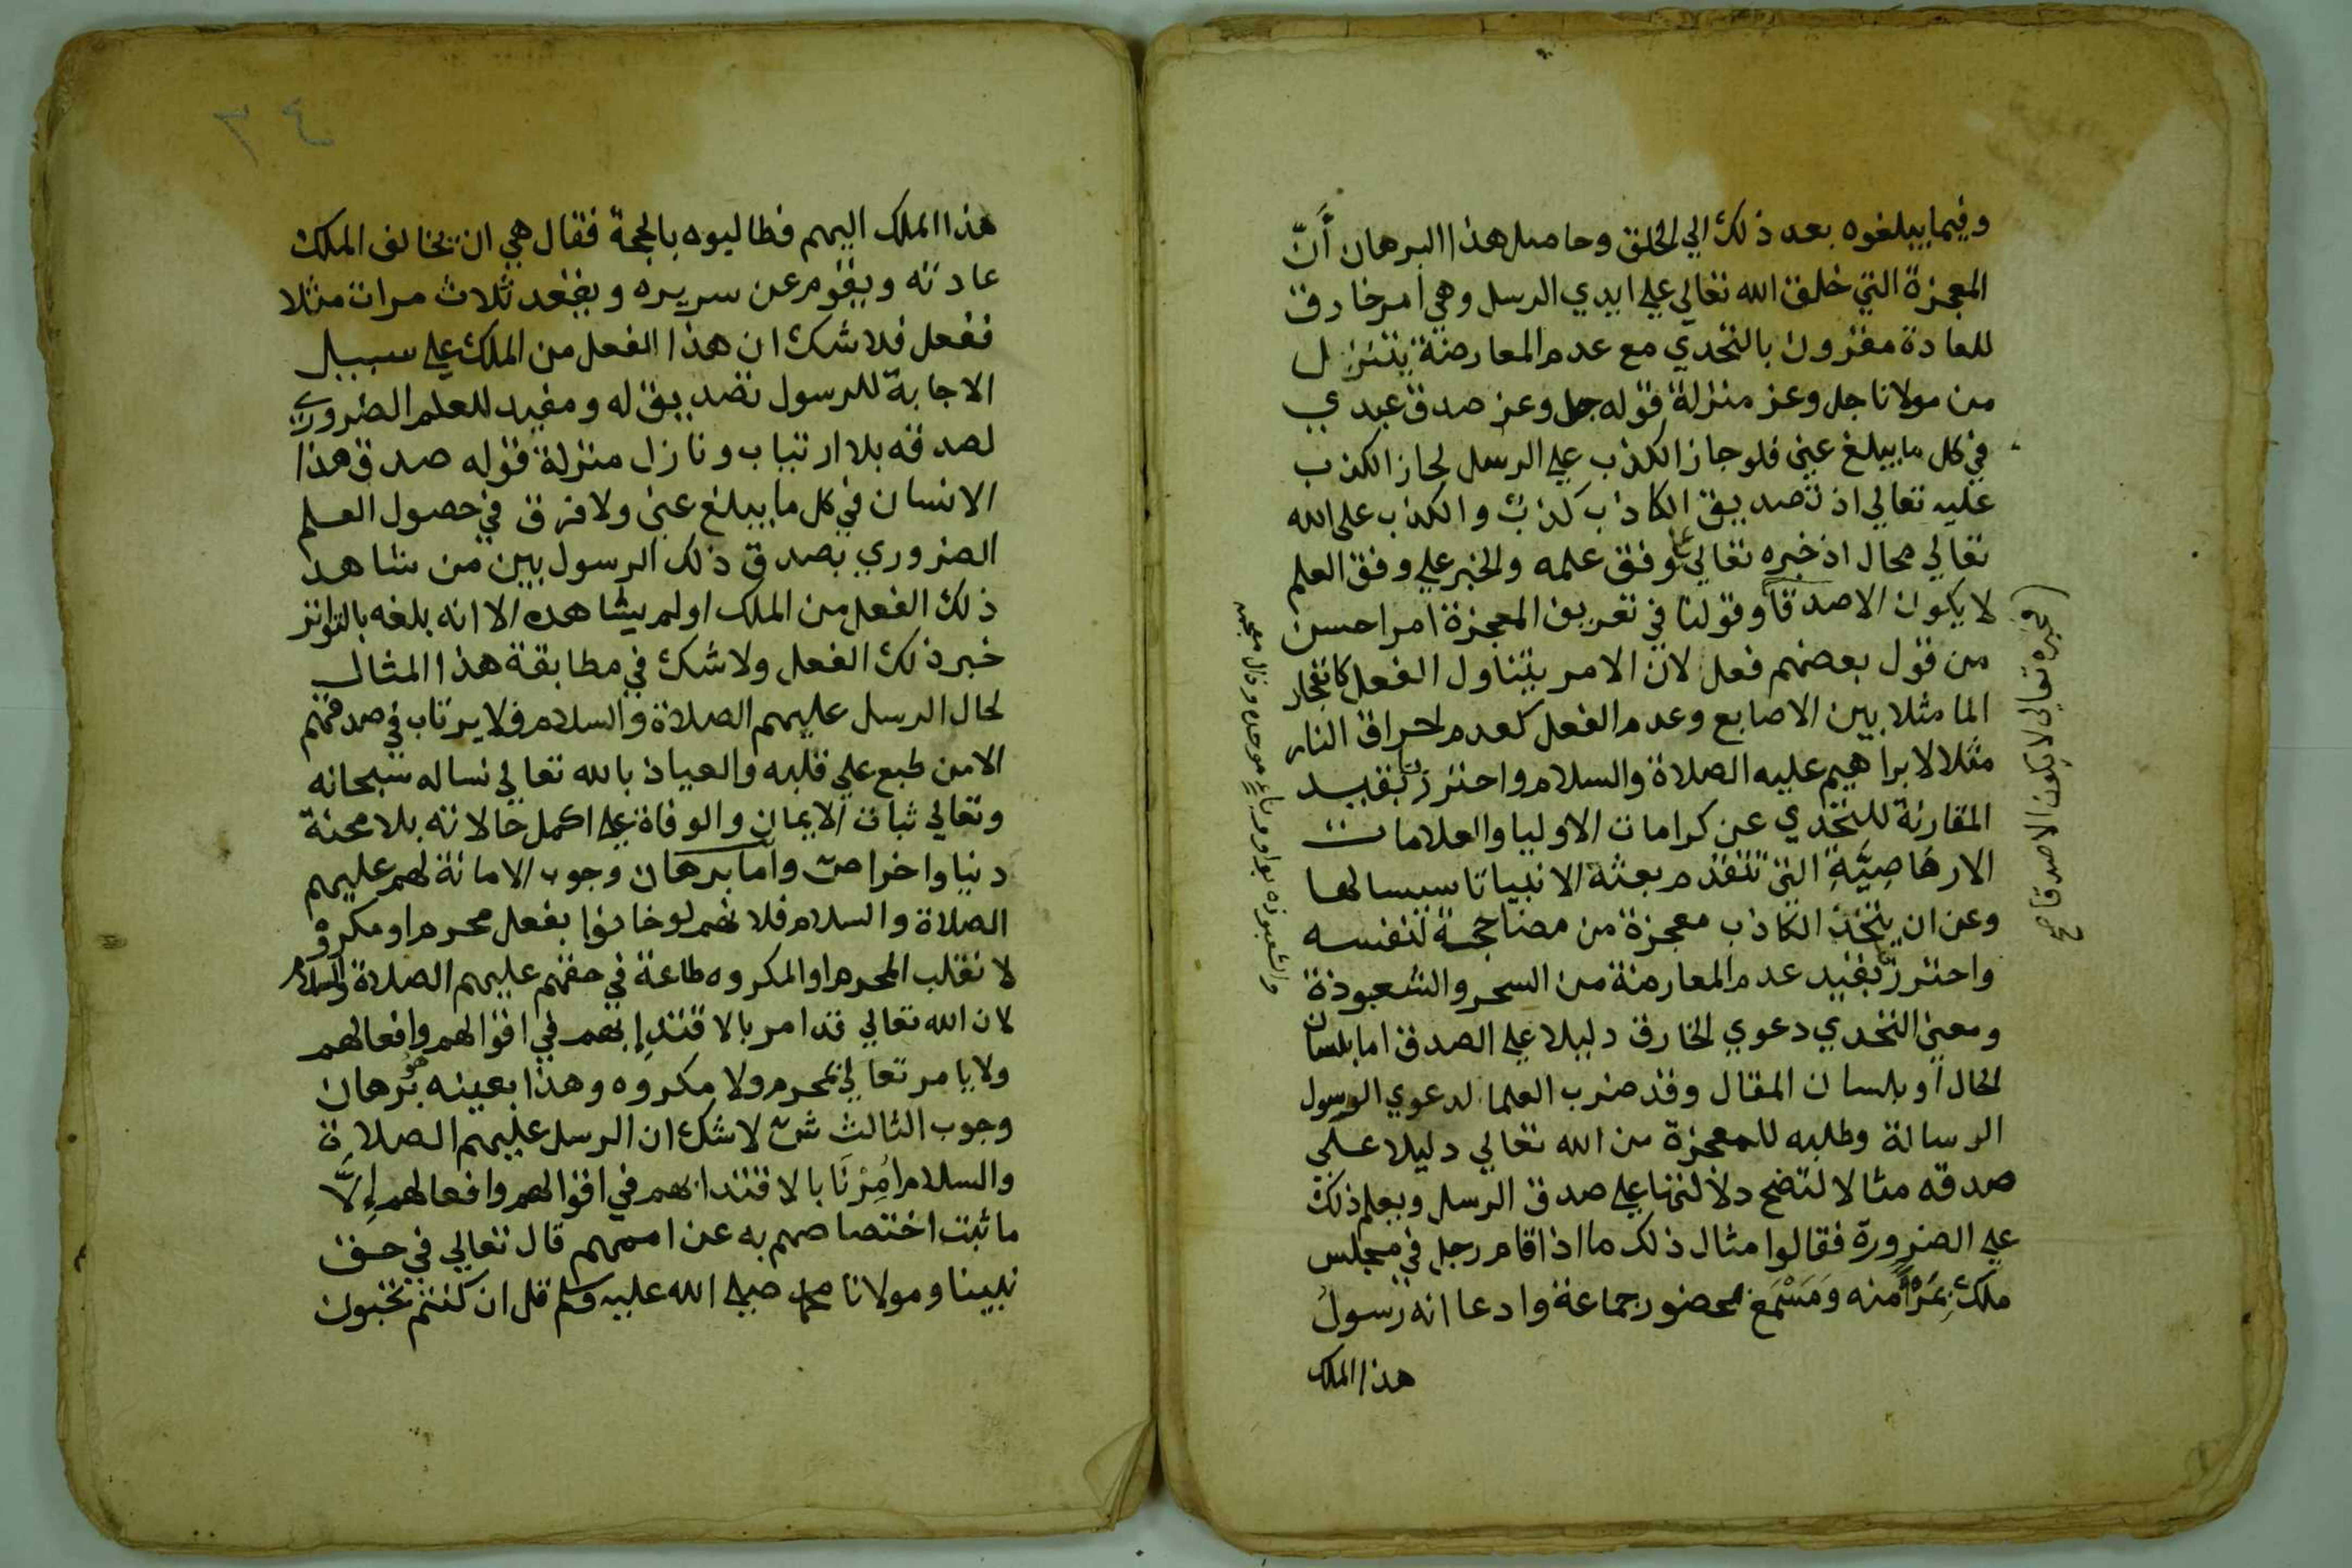 وفيما يبلغوه بعد ذلك الي الخلق وحاصل هذا البرهان أنّ
المعجزة التي خلق الله تعالي علي ايدي الرسل وهي امر خارق
للعادة مقرون بالتحدي مع عدم المعارضة يتنزل
من مولانا جل وعز منزلة قوله جل وعز صدق عبدي
في كل ما يبلغ عني فلو جاز الكذب علي الرسل لجاز الكذب
عليه تعالي اذ تصديق الكاذب كذبٌ والكذب على الله
تعالي محال اذ خبره تعالي علي وفق علمه والخبر علي وفق العلم
لا يكون الا صدقاً وقولنا في تعريف المعجزة امر احسن
من قول بعضهم فعل لان الامر يتناول الفعل كانفجار
الما مثلا بين الاصابع وعدم الفعل كعدم احراق النار
مثلا لابراهيم عليه الصلاة والسلام واحترزنا بقيد
المقارنة للتحدي عن كرامات الاوليا والعلامات
الارهَاصِيَّةِ التي تتقدم بعثة الانبيا تاسيسا لها
وعن ان يتخذ الكاذب معجزة من مضا حجة لنفسه
واحترزنا بقيد عدم المعارضة من السحر والشعبوذة
ومعني التحدي دعوي الخارق دليلا علي الصدق اما بلسان
الحال أو بلسان المقال وقد ضرب العلما لدعوي الرسول
الرسالة وطلبه للمعجزة من الله تعالي دليلا علي
صدقه مثالا لتضح دلالتها علي صدق الرسل ويعلم ذلك
علي الضرورة فقالوا مثال ذلك ما اذا قام رجل في مجلس
ملكٍ بِمَرْأًمنه وَمَسْمَع بحضور جماعة وادعا انه رسولُ
هذا الملك
وخبره تعالى لا يكون الا صدقا صح
هذا الملك اليهم فطالبوه بالحجة فقال هي ان يخالف الملك
عادته ويقوم عن سريره ويقعد ثلاث مرات مثلا
ففعل فلا شك ان هذا الفعل من الملك علي سبيل
الاجابة للرسول تصديق له ومفيد للعلم الضروري
لصدقه بلا ارتياب ونازل منزلة قوله صدق هذا
الانسان في كل ما يبلغ عني ولا فرق في حصول العلم
الضروري بصدق ذلك الرسول بين من شاهد
ذلك الفعل من الملك او لم يشاهده الا انه بلغه بالتواتر
خبر ذلك الفعل ولا شك في مطابقة هذا المثال
لحال الرسل عليهم الصلاة والسلام فلا يرتاب في صدقهم
الا من طبع علي قلبه والعياذ بالله تعالي نساله سبحانه
وتعالي ثبات الايمان والوفاة علي اكمل حالاته بلا محنة
دنيا واخرا ص واما برهان وجوب الامانة لهم عليهم
الصلاة والسلام فلانهم لو خانوا بفعل محرم او مكروه
لانقلب المحرم او المكروه طاعة في حقهم عليهم الصلاة والسلام
لان الله تعالي قد امر بالاقتدإ بهم في اقوالهم وافعالهم
ولا يامر تعالي بمحرم ولا مكروه وهذا بعينه هو برهان
وجوب الثالث ش لا شك ان الرسل عليهم الصلاة
والسلام اُمِرْنَا بالاقتدا بهم في اقوالهم وافعالهم إِلَّا
ما ثبت اختصاصهم به عن اممهم قال تعالي في حق
نبينا ومولانا محمد صلي الله عليه وسلم قل ان كنتم تحبون
٣٤